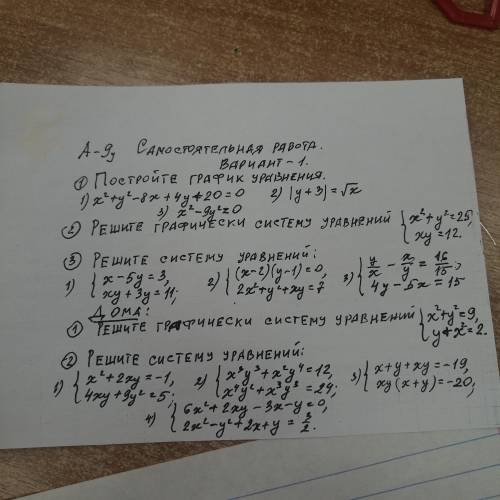 А-9у Самостоятельная работа.
Вариант-1.
① Постройте график уравнения.
1) x²+y²-8x+4y+20=0 2) |y+3|=√x
3) x²-9y²=0
② Решите графически систему уравнений { x²+y²=25, xy=12.
③ Решите систему уравнений:
1) { x-5y=3, xy+3y=11; 2) { (x-2)(y-1)=0, 2x²+y²+xy=7 3) { y/x - x/y = 16/15; 4y-5x=15
Дома:
① Решите графически систему уравнений { x²+y²=9, y+x²=2.
② Решите систему уравнений:
1) { x²+2xy=-1, 4xy+9y²=5; 2) { x³y³+x²y⁴=12, x⁴y²+x³y³=24; 3) { x+y+xy=-19, xy(x+y)=-20;
4) { 6x²+2xy-3x-y=0, 2x²-y²+2x+y=3/2.